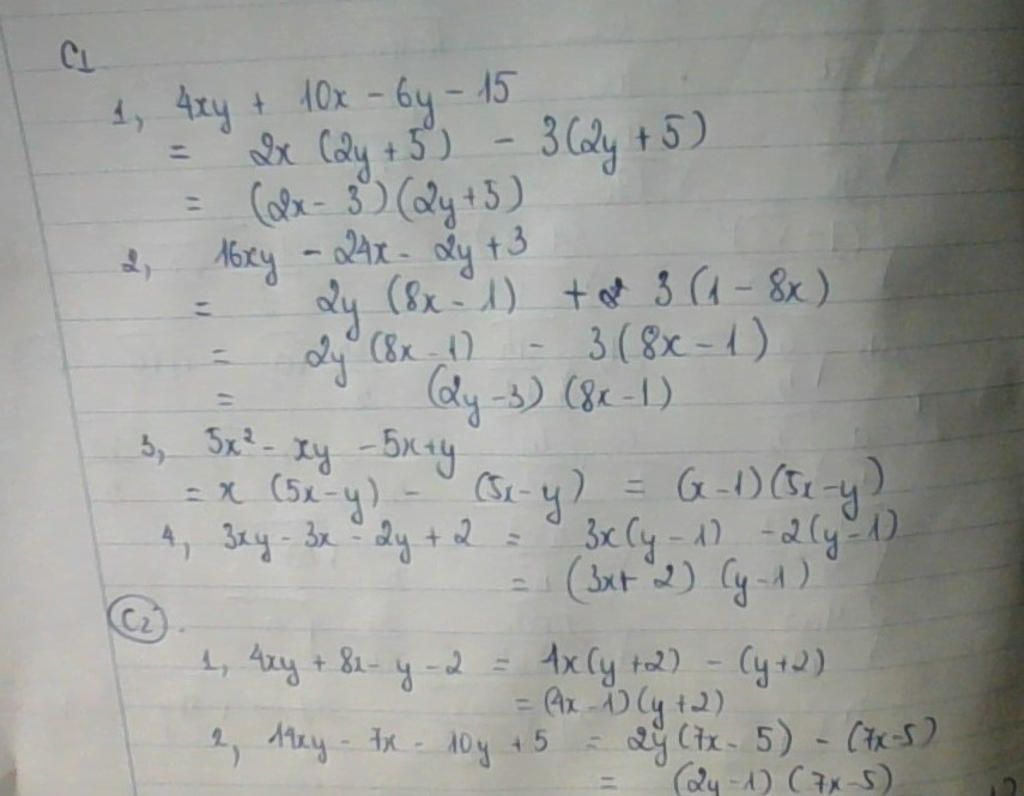 C1
1, 4xy + 10x - 6y - 15
= 2x (2y + 5) - 3(2y + 5)
= (2x - 3)(2y + 5)
2, 16xy - 24x - 2y + 3
= 2y (8x - 1) + 3 (1 - 8x)
= 2y (8x - 1) - 3(8x - 1)
= (2y - 3) (8x - 1)
3, 5x² - xy - 5x + y
= x (5x - y) - (5x - y) = (x - 1)(5x - y)
4, 3xy - 3x - 2y + 2 = 3x(y - 1) - 2(y - 1)
= (3x + 2) (y - 1)
C2.
1, 4xy + 8x - y - 2 = 4x(y + 2) - (y + 2)
= (4x - 1)(y + 2)
2, 14xy - 7x - 10y + 5 = 2y(7x - 5) - (7x - 5)
= (2y - 1) (7x - 5)